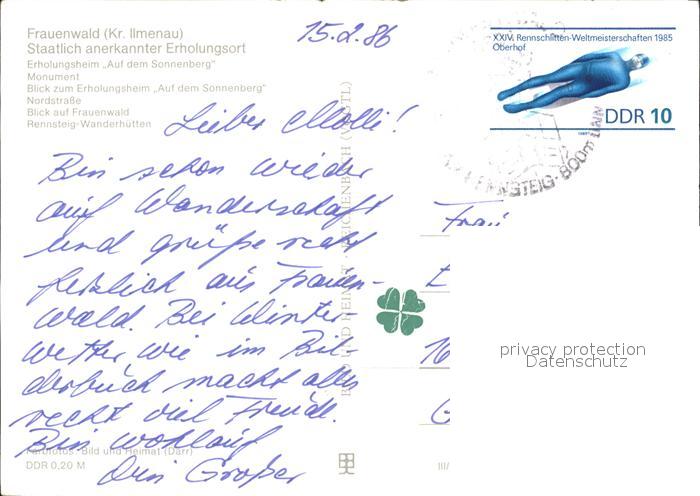 Frauenwald (Kr. Ilmenau)
Staatlich anerkannter Erholungsort
Erholungsheim „Auf dem Sonnenberg"
Monument
Blick zum Erholungsheim „Auf dem Sonnenberg"
Nordstraße
Blick auf Frauenwald
Rennsteig-Wanderhütten
15.2.86
XXIV. Rennschlitten-Weltmeisterschaften 1985
Oberhof
DDR 10
RENNSTEIG · 800m ü.NN
Lieber Molli!
Bin schon wieder
auf Wanderschaft
und grüße recht
herzlich aus Frauen-
wald. Bei Winter-
wetter wie im Bil-
derbuch macht alles
recht viel Freude.
Bin wohlauf
Dein Großer
Frau
16
privacy protection
Datenschutz
Farbfotos: Bild und Heimat (Darr)
DDR 0,20 M
BILD UND HEIMAT REICHENBACH (VOGTL)
III/